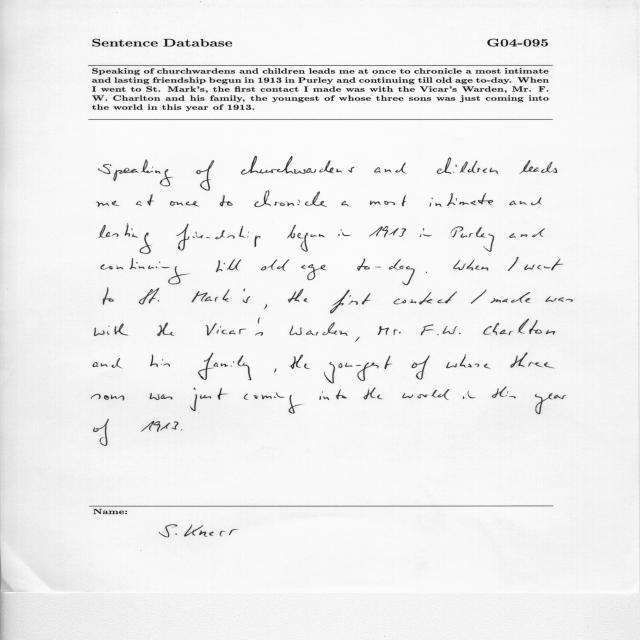 Sentence Database G04-095
Speaking of churchwardens and children leads me at once to chronicle a most intimate
and lasting friendship begun in 1913 in Purley and continuing till old age to-day. When
I went to St. Mark's, the first contact I made was with the Vicar's Warden, Mr. F.
W. Charlton and his family, the youngest of whose three sons was just coming into
the world in this year of 1913.
Speaking of churchwardens and children leads
me at once to chronicle a most intimate and
lasting friendship begun in 1913 in Purley and
continuing till old age to-day. When I went
to St. Mark's, the first contact I made was
with the Vicar's Warden, Mr. F.W. Charlton
and his family, the youngest of whose three
sons was just coming into the world in this year
of 1913.
Name:
S. Knerr